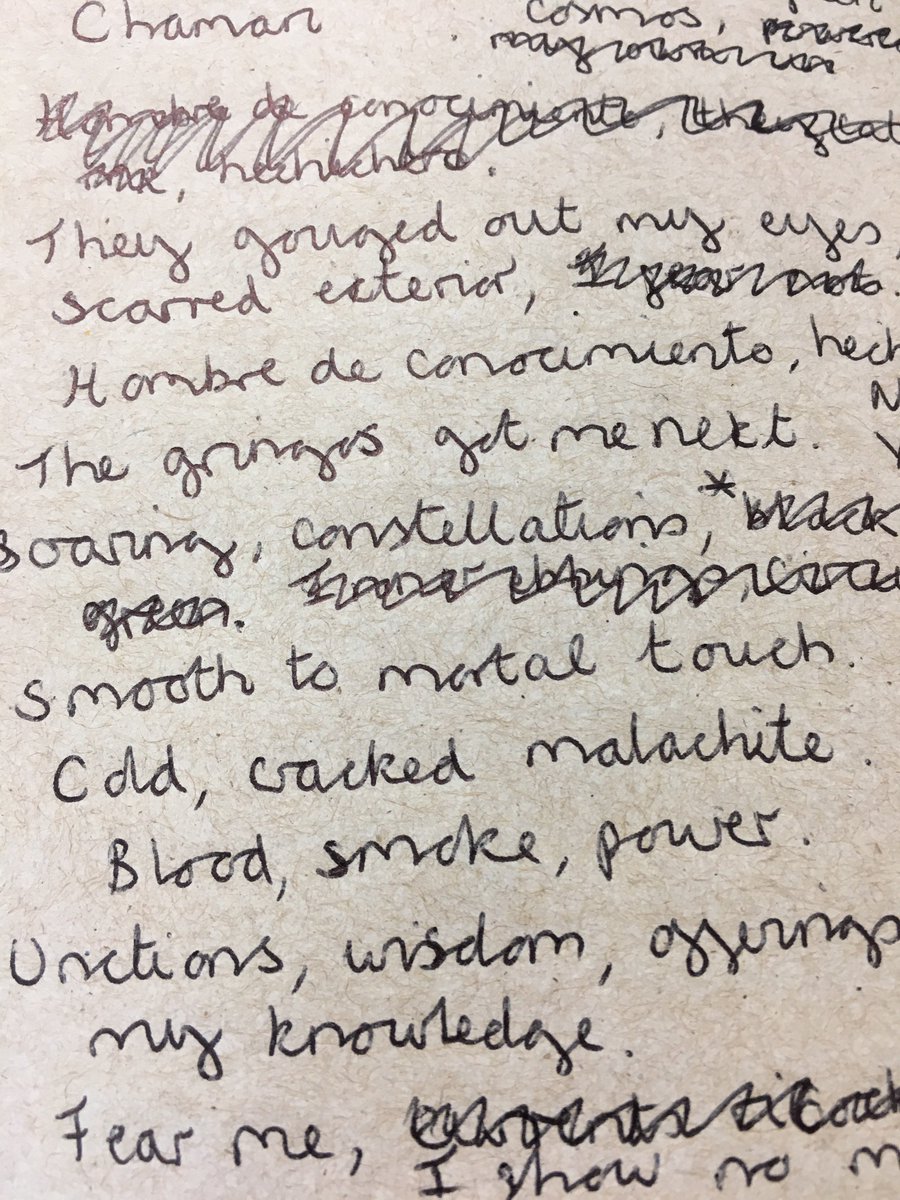 Chaman
cosmos,
Hombre de conocimiento,
hechichero.
They gouged out my eyes,
scarred exterior,
Hombre de conocimiento, hech
The gringos got me next.
Soaring, constellations,* black
green.
Smooth to mortal touch.
Cold, cracked malachite.
Blood, smoke, power.
Unctions, wisdom, offerings
my knowledge.
Fear me,
I show no m